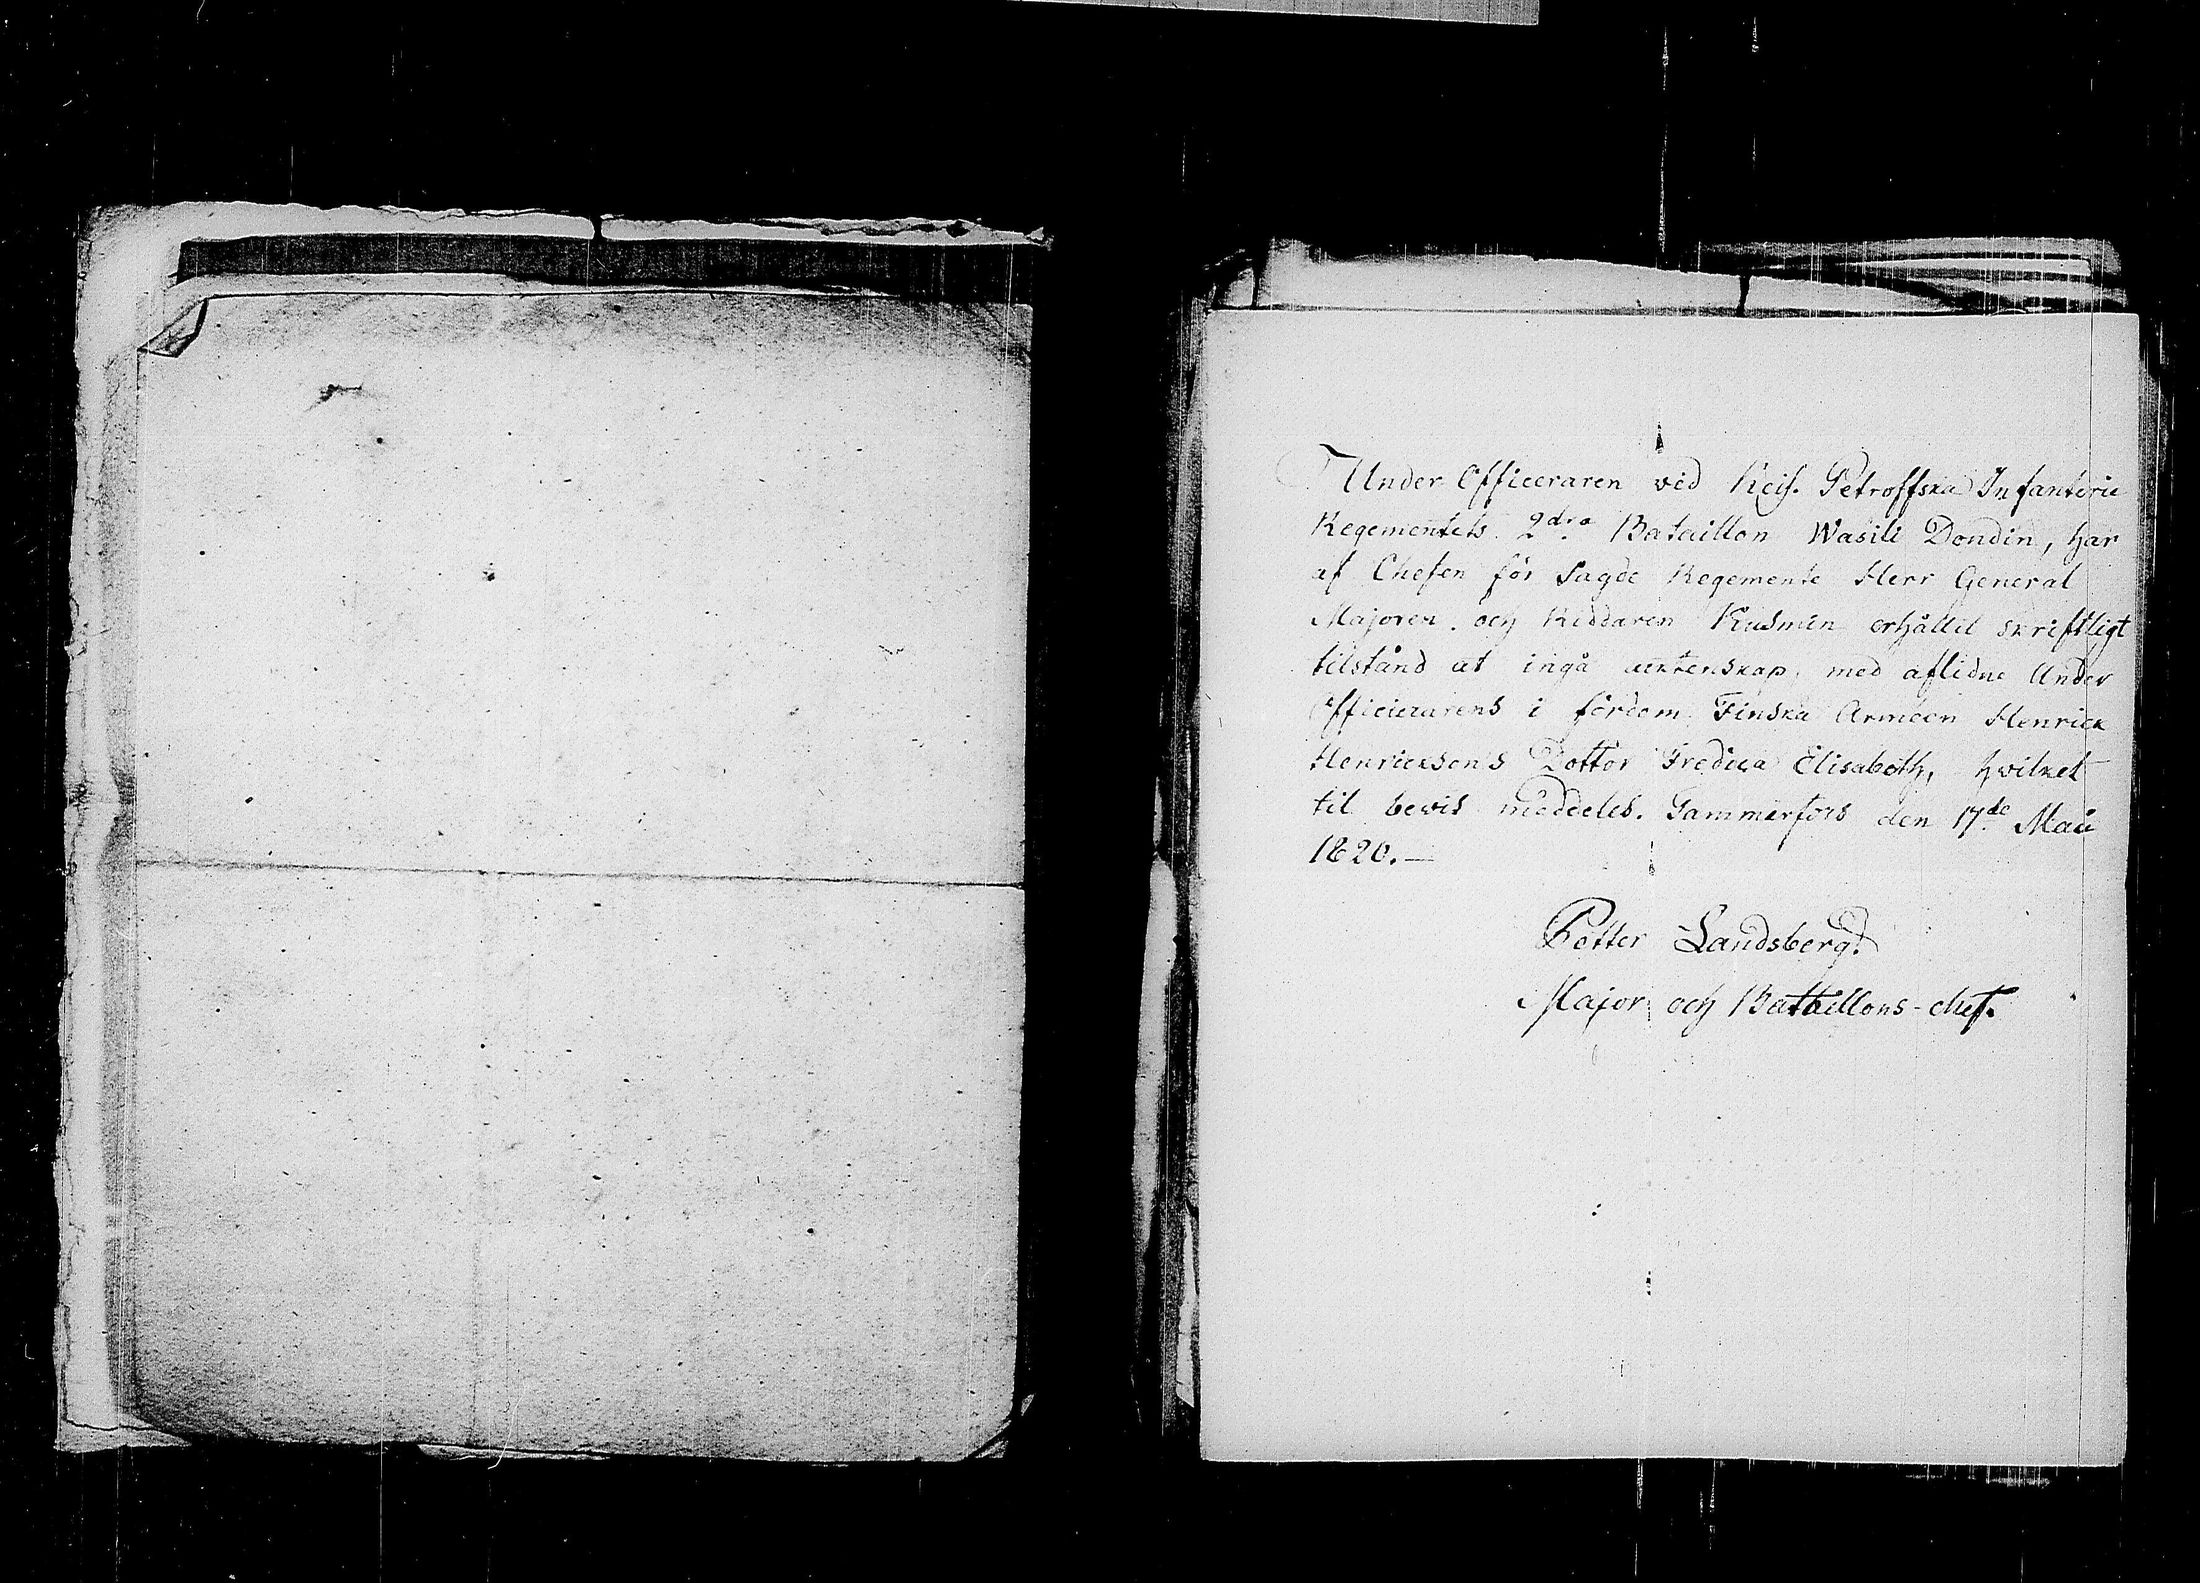 Under Officeraren vid Keis. Petroffska Infanterie
Regementets 2dra Bataillon Wasili Dondin, har
af Chefen för Sagde Regemente Herr General
Majoren och Riddaren Kusmin erhållit skriftligt
tilstånd at ingå äcktenskap, med aflidne Under
Officerarens i fördom Finska Armeen Henrick
Henricksons Dotter Fredica Elisabeth, hvilket
til bevis meddeles. Tammerfors den 17de Maii
1820.—
Petter Landsberg.
Major och Battaillons-chef.